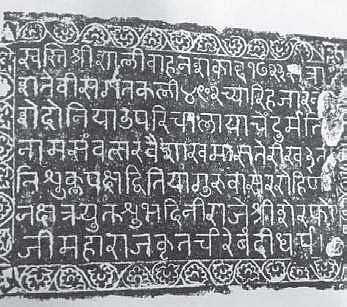 स्वस्ति श्री शालीवाहन शकाब्द
शतेवीस गत कली च्यारि हजार
शे दोनिया उपरि चालाया चे दुर्मति
नाम संवत्सर वैशाख मास तेरीख
ति शुक्लपक्ष द्वितिया गुरुवासर रोहिणि
नक्षत्रयुक्त शुभदिनी राजेश्री शेरफो
जी महाराज कृत चीरबंदी धर्म